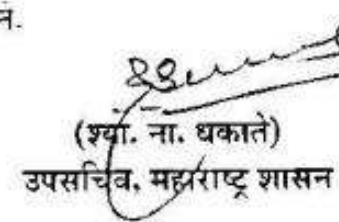 न.
(श्या. ना. धकाते)
उपसचिव, महाराष्ट्र शासन